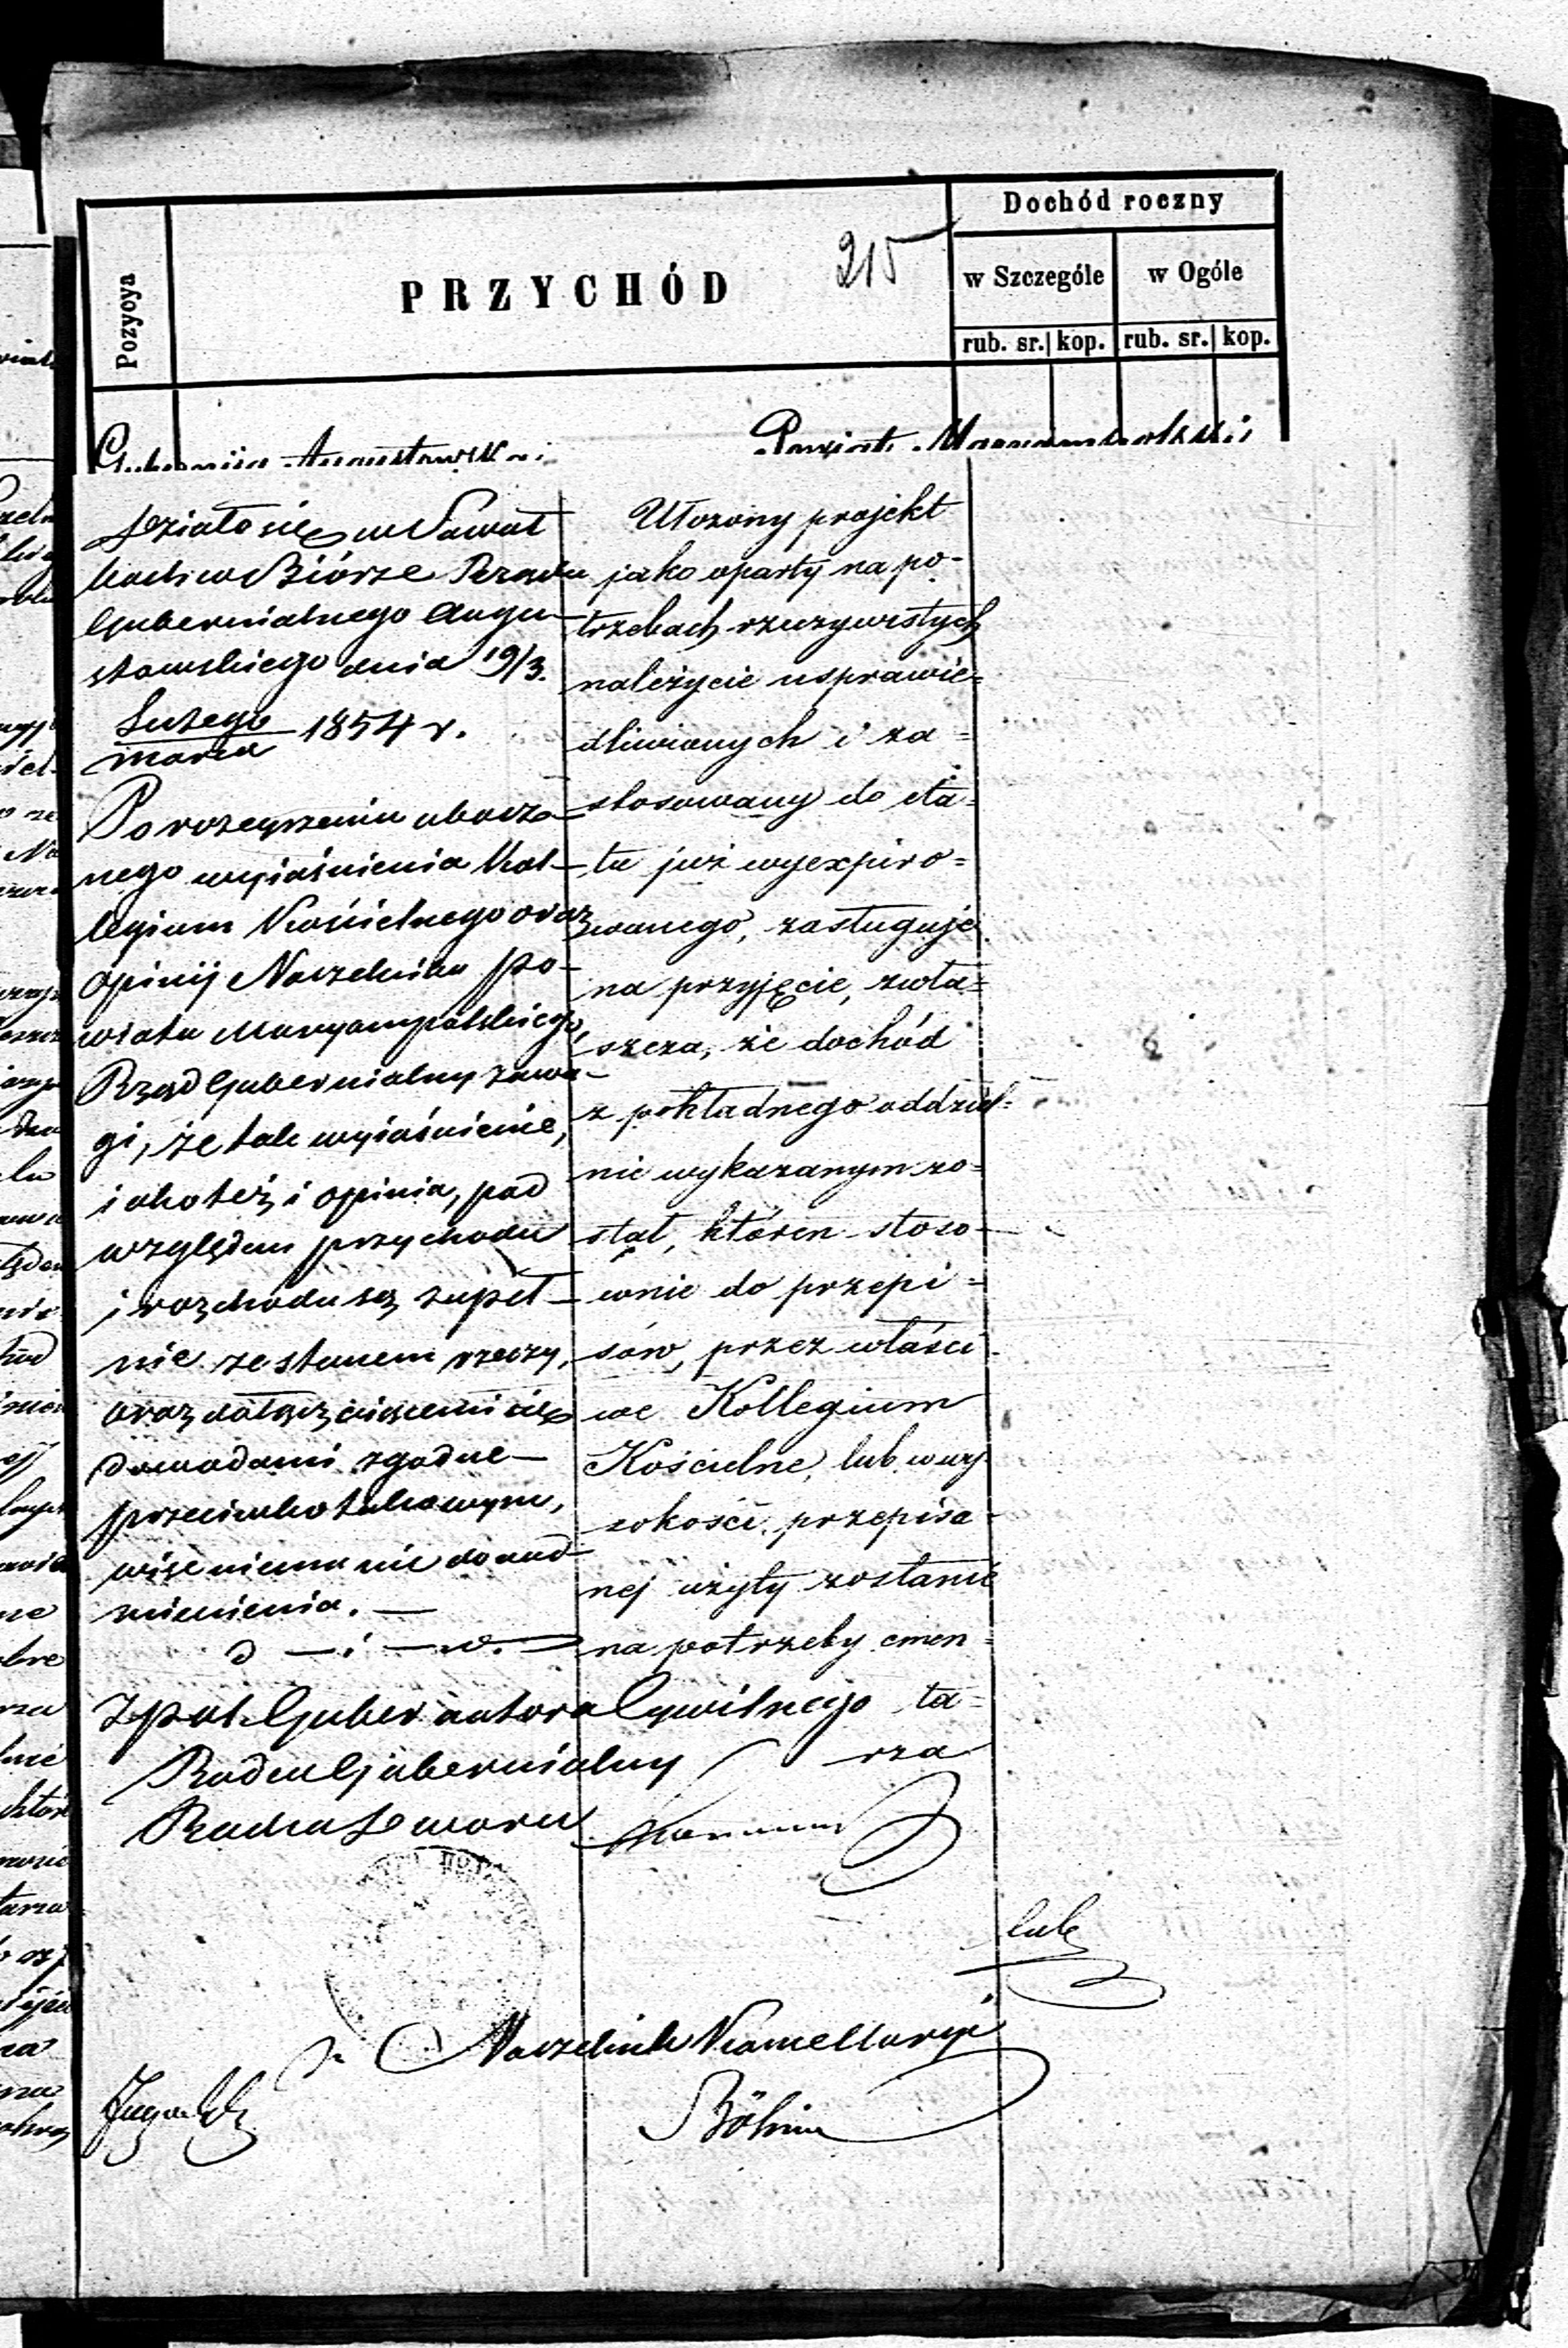 Dochód roczny
Pozycya
PRZYCHÓD
215
w Szczególe
w Ogóle
rub. sr.
kop.
rub. sr.
kop.
Gubernija Augustowska
Powiat Maryampolski
Działo się w Suwał
kach w Biórze Rządu
Gubernialnego Augu-
stowskiego dnia 19/3.
Lutego
marca
1854 r.
Po rozejrzeniu obocz-
nego wyjaśnienia Kol-
legium Kościelnego oraz
opinij Naczelnika Po-
wiatu Maryampolskiego,
Rząd Gubernialny zawa-
gi, że tak wyjaśnienie,
jakoteż i opinia, pod
względem przychodu
i rozchodu są zupeł-
nie ze stanem rzeczy,
oraz dołączającemi się
dowodami zgodne-
przeciwko takowym,
więc niema nic do nad-
mienienia. —
d — i — w. —
Ułożony projekt
jako oparty na po-
trzebach rzeczywistych
należycie usprawie=
dliwionych i za=
stosowany do eta=
tu już wyexpiro=
wanego, zasługuje
na przyjęcie, zwła=
szcza, że dochód
z pokładnego oddziel=
nie wykazanym zo=
stał, któren stoso-
wnie do przepi=
sów, przez właści-
we Kollegium
Kościelne, lub w wy
sokości przepisa-
nej użyty zostanie
na potrzeby cmen=
ta=
rza
Gubernatora Cywilnego
Radca Gubernialny
Radca Dworu
Naczelnik Kancellaryi
Böhm